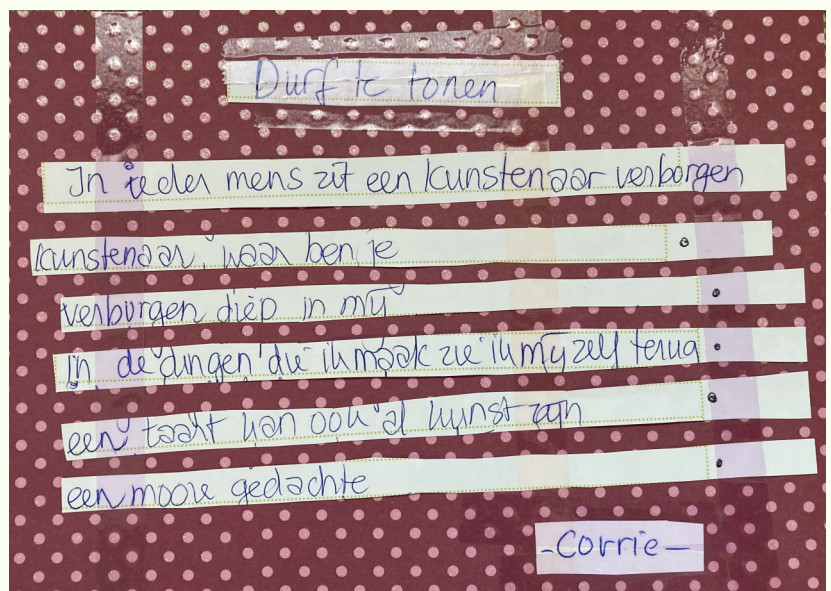 Durf te tonen
In ieder mens zit een kunstenaar verborgen
kunstenaar, waar ben je
verborgen diep in mij
in de dingen die ik maak zie ik mijzelf terug
een taart kan ook al kunst zijn
een mooie gedachte
-Corrie-